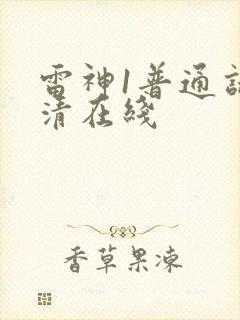 雷神1普通話
清在綫
香草果凍